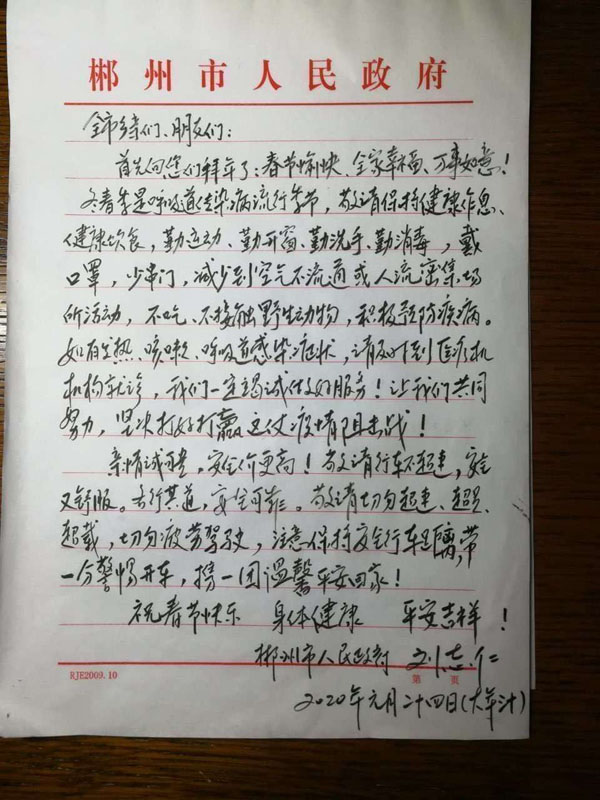 郴州市人民政府
全市乡亲们、朋友们：
首先向您们拜年了：春节愉快、全家幸福、万事如意！
冬春季是呼吸道传染病流行季节，敬请保持健康作息、
健康饮食，勤运动、勤开窗、勤洗手、勤消毒，戴
口罩，少串门，减少到空气不流通或人流密集场
所活动，不吃、不接触野生动物，积极预防疾病。
如有发热、咳嗽、呼吸道感染症状，请及时到医疗机
机构就诊，我们一定竭诚做好服务！让我们共同
努力，坚决打好打赢这仗疫情阻击战！
亲情诚可贵，安全价更高！敬请行车不超速，安全
又舒服。各行其道，安全可靠。敬请切勿超速、超员、
超载，切勿疲劳驾驶，注意保持安全行车距离，带
一分警惕开车，携一团温馨平安回家！
祝春节快乐 身体健康 平安吉祥！
郴州市人民政府 刘志仁
RJE2009.10 第 页
2020年元月二十四日（大年卅）